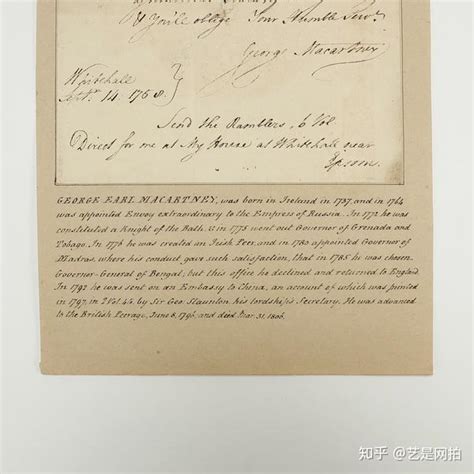 & You'le oblige Your Humble Serv.t
George Macartney
Whitehall
Sept. 14. 1768.
Send the Ramblers, 6 Vol
Direct for me at My House at Whitehall near
Epsom.
GEORGE EARL MACARTNEY, was born in Ireland in 1737, and in 1764
was appointed Envoy extraordinary to the Empress of Russia. In 1772 he was
constituted a Knight of the Bath. & in 1775 went out Governor of Grenada and
Tobago. In 1776 he was created an Irish Peer, and in 1780 appointed Governor of
Madras, where his conduct gave such satisfaction, that in 1785 he was chosen
Governor-General of Bengal; but this office he declined and returned to England
In 1792 he was sent on an Embassy to China, an account of which was printed
in 1797, in 2 Vol. 4to. by Sir Geo. Staunton his lordship's Secretary. He was advanced
to the British Peerage, June 8, 1796, and died Mar. 31. 1806.
知乎 @艺是网拍